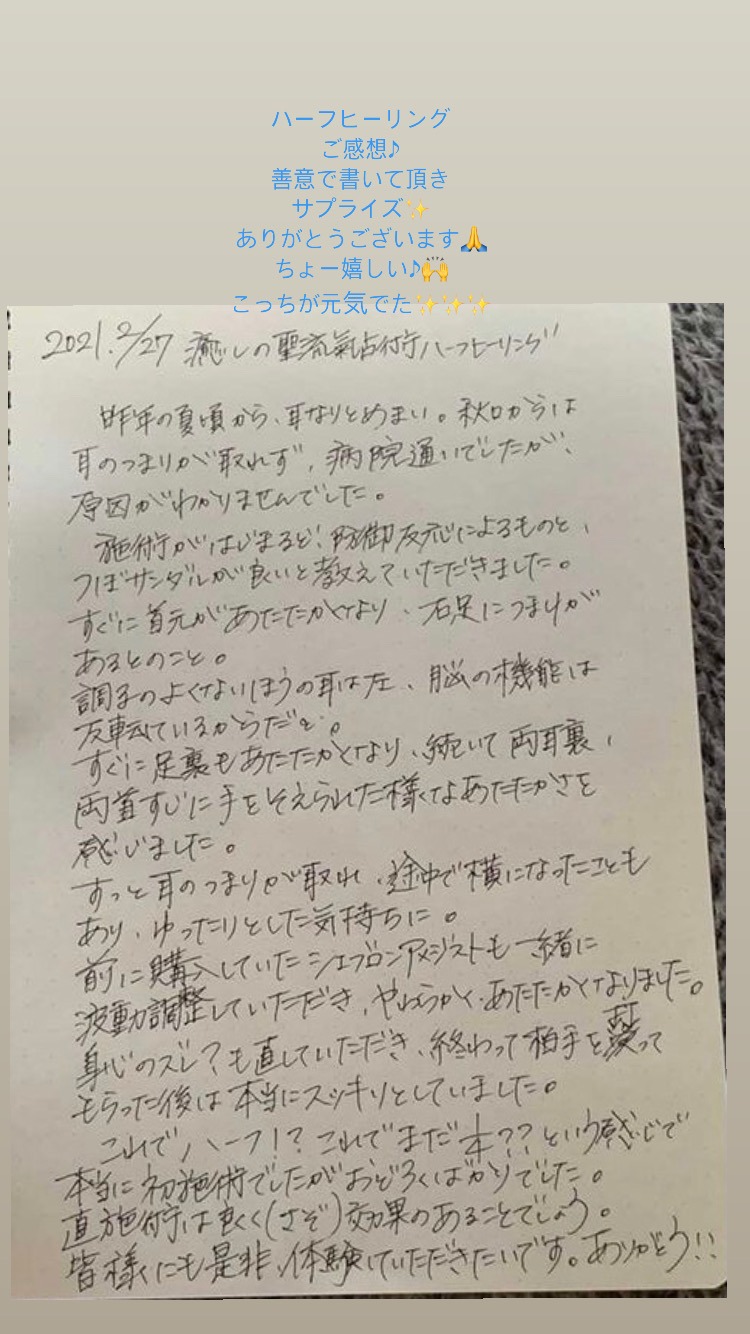 ハーフヒーリング
ご感想♪
善意で書いて頂き
サプライズ✨
ありがとうございます🙏
ちょー嬉しい♪🙌
こっちが元気でた✨✨✨
2021.2/27 癒しの聖流氣占術庁ハーフヒーリング
昨年の夏頃から、耳なりとめまい。秋口からは
耳のつまりが取れず、病院通いでしたが、
原因がわかりませんでした。
施術がはじまると、防御反応によるものと、
つぼサンダルが良いと教えていただきました。
すぐに首元があたたかくなり、右足につまりが
あるとのこと。
調子のよくないほうの耳は左、脳の機能は
反転しているからだと。
すぐに足裏もあたたかくなり、続いて両耳裏、
両首すじに手をそえられた様なあたたかさを
感じました。
すっと耳のつまりが取れ、途中で横になったことも
あり、ゆったりとした気持ちに。
前に購入していたシェブロンアメジストも一緒に
波動調整していただき、やわらかく、あたたかくなりました。
身心のズレ?も直していただき、終わって柏手を打って
もらった後は本当にスッキリとしていました。
これでハーフ!?これでまだ本??という感じで
本当に初施術でしたがおどろくばかりでした。
直施術は良く(さぞ)効果のあることでしょう。
皆様にも是非、体験していただきたいです。ありがとう!!